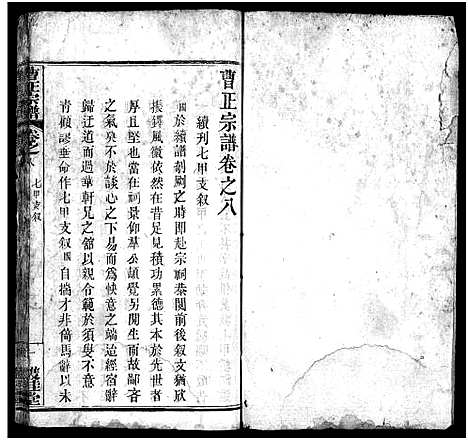 曹正宗譜卷之八
續刊七甲支叙
於續譜剞劂之時即赴宗祠恭閱前後叙文猶欣
振鐸風徽依然在昔足見積功累德其本於先世者
厚且堅也當在祠景仰羣公頡覺另開生面故鄙吝
之氣奐不於談心之下易而爲快意之端迨經宿辭
歸迂道而過華軒兄之舘以親令範於須臾不意
青顧謬垂命作七甲支叙 自揣才非倚馬辭以未
曹正宗譜
卷之八
七甲支叙
一
雙桂堂